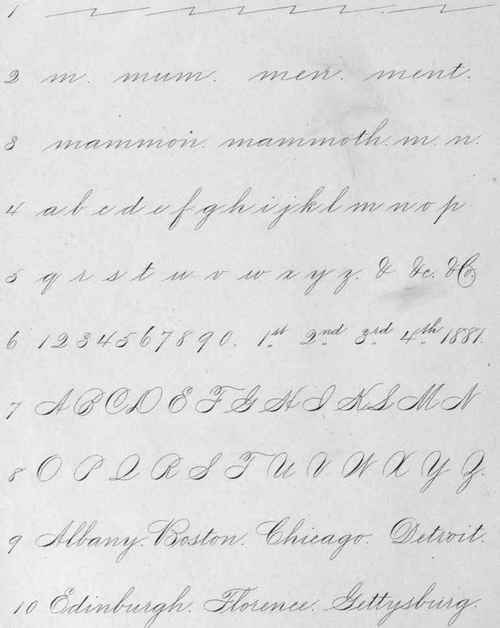 1
2 m. mum. men. ment.
3 mammon. mammoth. m. n.
4 a b c d e f g h i j k l m n o p
5 q r s t u v w x y z. & &c. &Co.
6 1 2 3 4 5 6 7 8 9 0. 1st 2nd 3rd 4th 1881.
7 A B C D E F G H I K L M N
8 O P Q R S T U V W X Y Z.
9 Albany. Boston. Chicago. Detroit.
10 Edinburgh. Florence. Gettysburg.